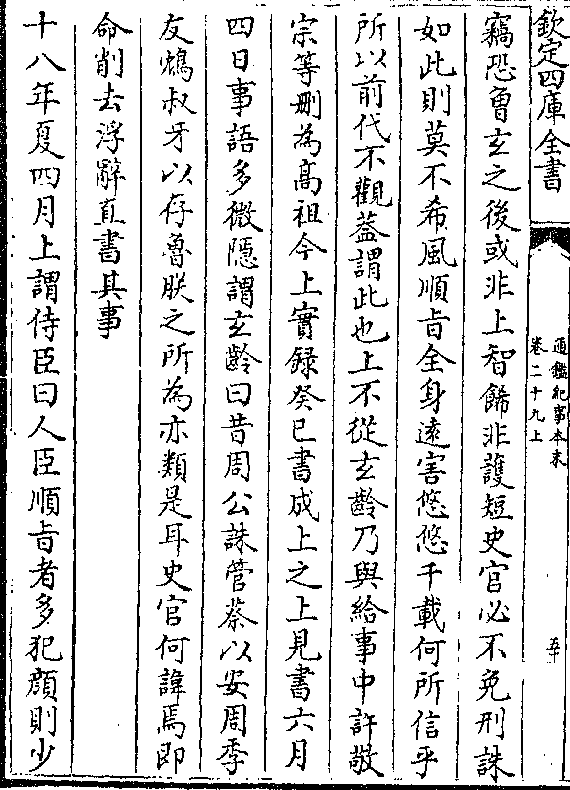 欽定四庫全書
通鑑紀事本末
卷二十九上
竊恐曾玄之後或非上智飾非護短史官必不免刑誅
如此則莫不希風順旨全身遠害悠悠千載何所信乎
所以前代不觀葢謂此也上不從玄齡乃與給事中許敬
宗等刪為高祖今上實録癸巳書成上之上見書六月
四日事語多微隠謂玄齡曰昔周公誅管蔡以安周季
友鴆叔牙以存魯朕之所為亦類是耳史官何諱焉即
命削去浮辭直書其事
十八年夏四月上謂侍臣曰人臣順旨者多犯顔則少